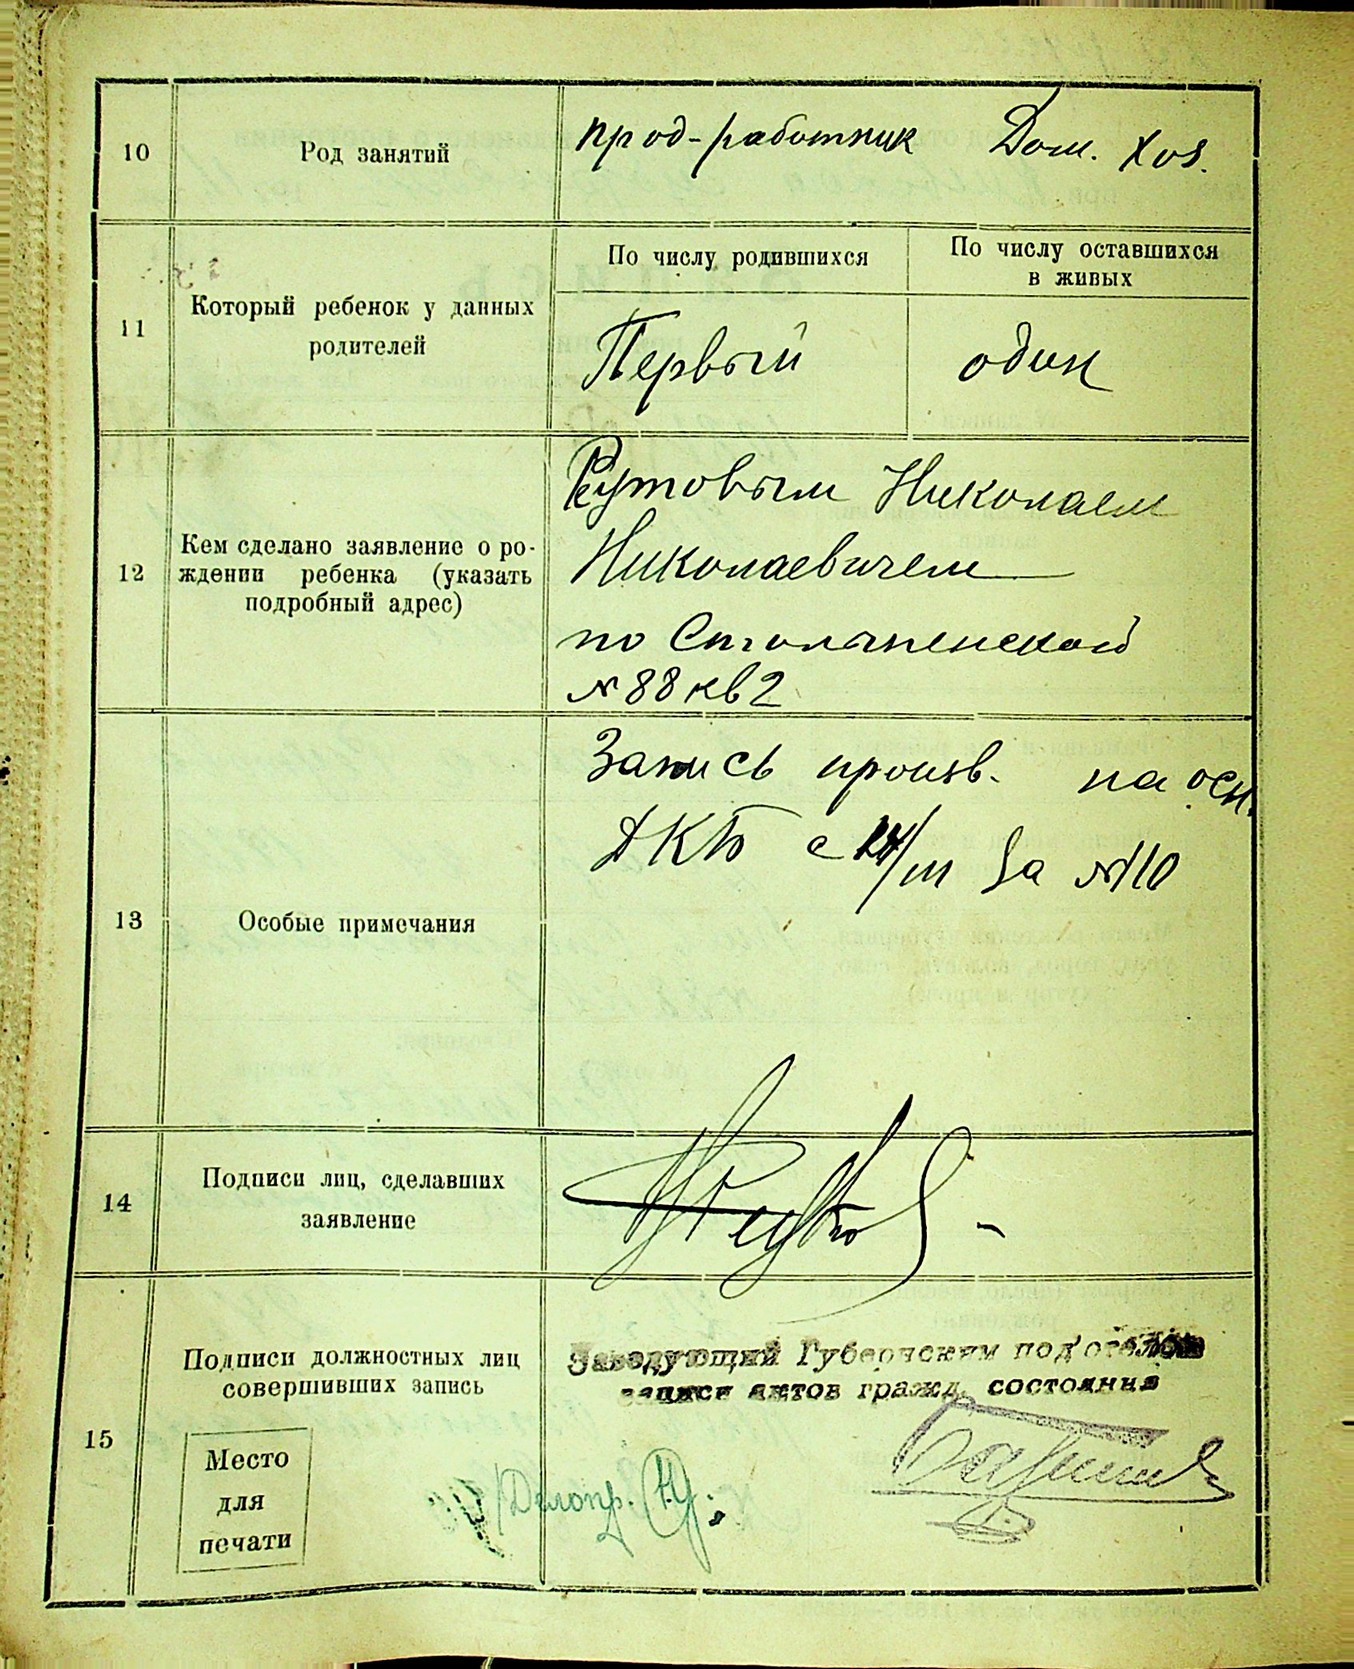 10 Род занятий прод-работник Дом. хоз.
По числу родившихся По числу оставшихся
в живых
11 Который ребенок у данных
родителей
Первый один
12 Кем сделано заявление о ро-
ждении ребенка (указать
подробный адрес)
Рутовым Николаем
Николаевичем
по
№ 88 кв 2
13 Особые примечания
Запись произв. на осн.
с /III за № 110
14 Подписи лиц, сделавших
заявление
15 Подписи должностных лиц
совершивших запись
Заведующий Губернским подотделом
записи актов гражд. состояния
Место
для
печати
Делопр.